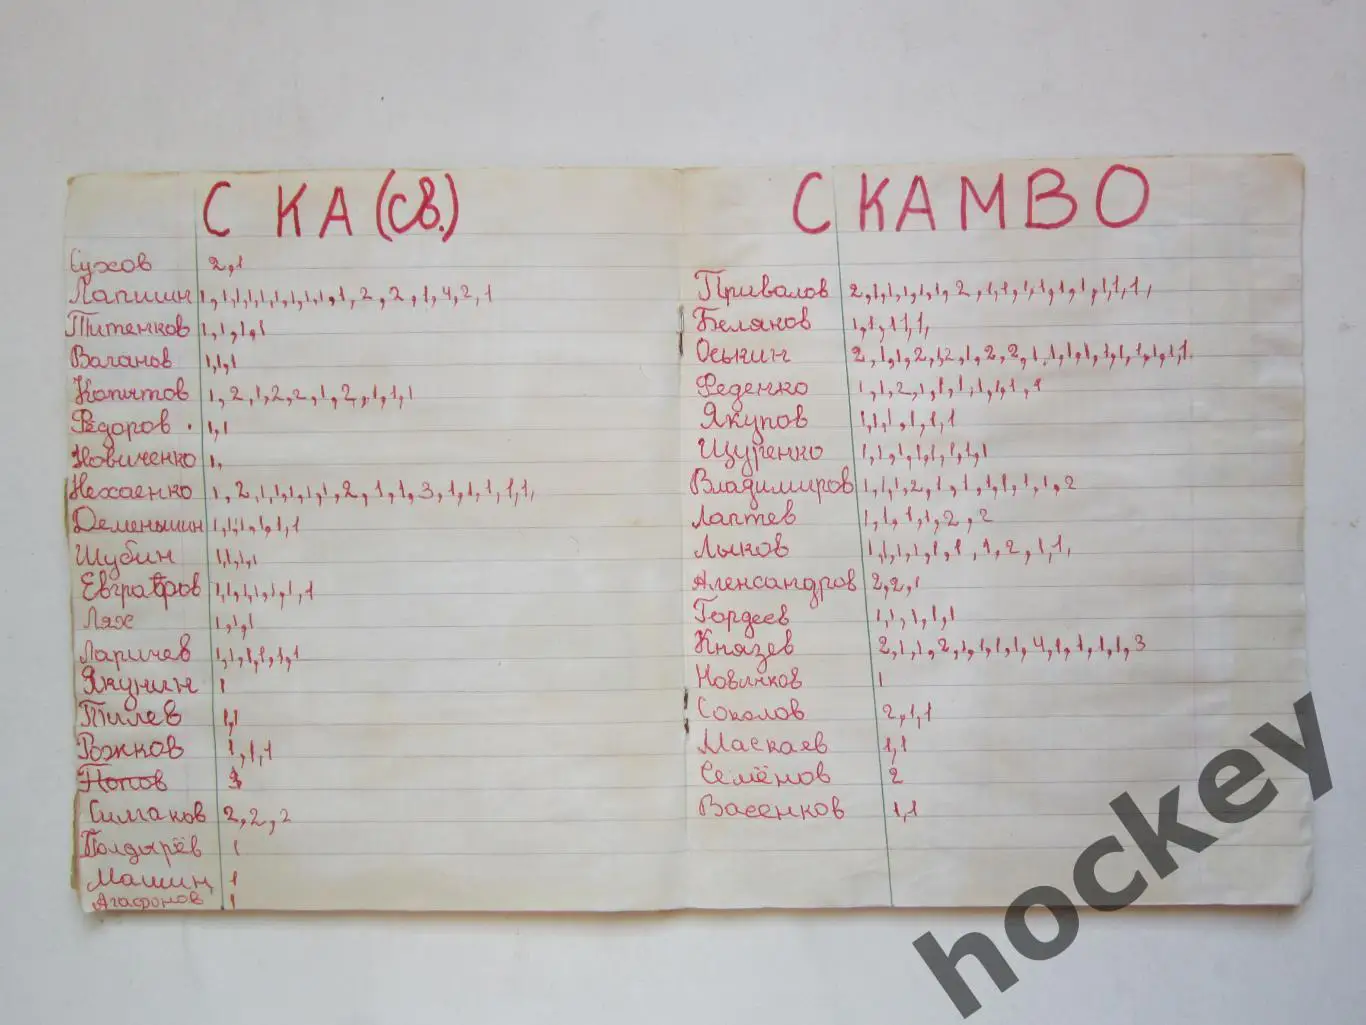 СКА (св.)
Сухов 2,1
Лапшин 1,1,1,1,1,1,1,1,1,1,1,2,2,1,4,2,1
Титенков 1,1,1,1
Ваганов 1,1,1
Копытов 1,2,1,2,2,1,2,1,1,1
Фёдоров . 1,1
Новиченко 1,
Нехаенко 1,2,1,1,1,1,1,2,1,1,3,1,1,1,1,1,
Деменьшин 1,1,1,1,1,1,1
Шубин 1,1,1,1
Евграфов 1,1,1,1,1,1,1
Лях 1,1,1
Ларичев 1,1,1,1,1,1
Якунин 1
Пилев 1,1
Рожков 1,1,1
Попов
Симаков 2,2,2
Болдырёв 1
Машин 1
Агафонов 1
СКАМВО
Привалов 2,1,1,1,1,1,2,1,1,1,1,1,1,1,1,1,
Белянов 1,1,1,1,1,
Оськин 2,1,1,2,1,2,1,2,2,1,1,1,1,1,1,1,1,1,1
Феденко 1,1,2,1,1,1,1,1,1,1
Якупов 1,1,1,1,1,1
Щуренко 1,1,1,1,1,1,1,1
Владимиров 1,1,1,2,1,1,1,1,1,1,2
Лаптев 1,1,1,1,2,2
Лыков 1,1,1,1,1,1,1,2,1,1,
Александров 2,2,1
Гордеев 1,1,1,1,1
Князев 2,1,1,2,1,1,1,1,4,1,1,1,1,3
Новиков 1
Соколов 2,1,1
Маскаев 1,1
Семёнов 2
Васенков 1,1
hockey